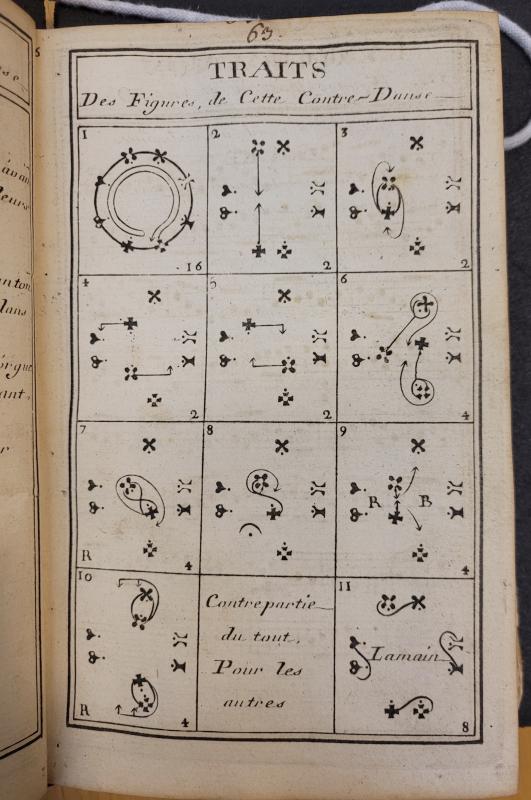 63.
TRAITS
Des Figures, de Cette Contre-Danse
1
16
2
2
3
2
4
2
5
2
6
4
7
R
4
8
9
R
B
4
10
R
4
Contrepartie
du tout,
Pour les
autres
11
Lamain
8